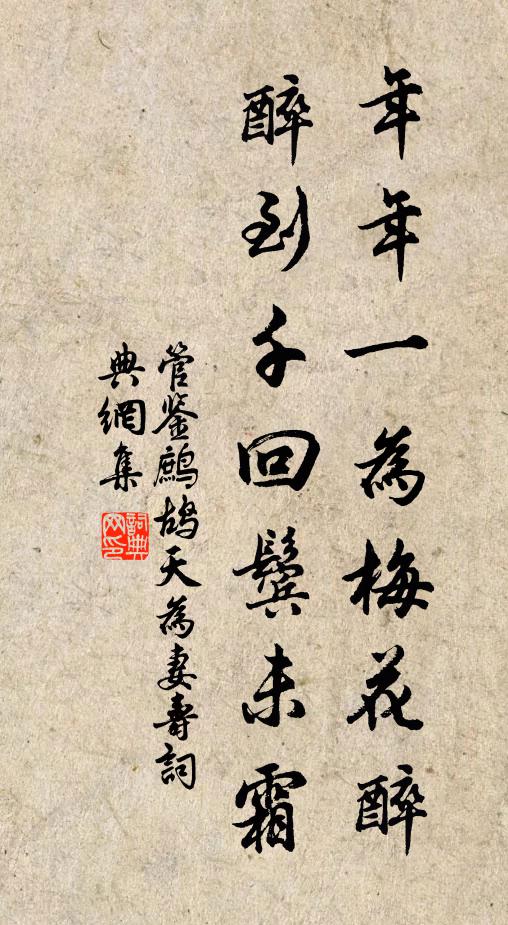 年年一為梅花醉
醉到千回鬓未霜
管鉴鹧鸪天為妻壽詞
典網集
詞典网印